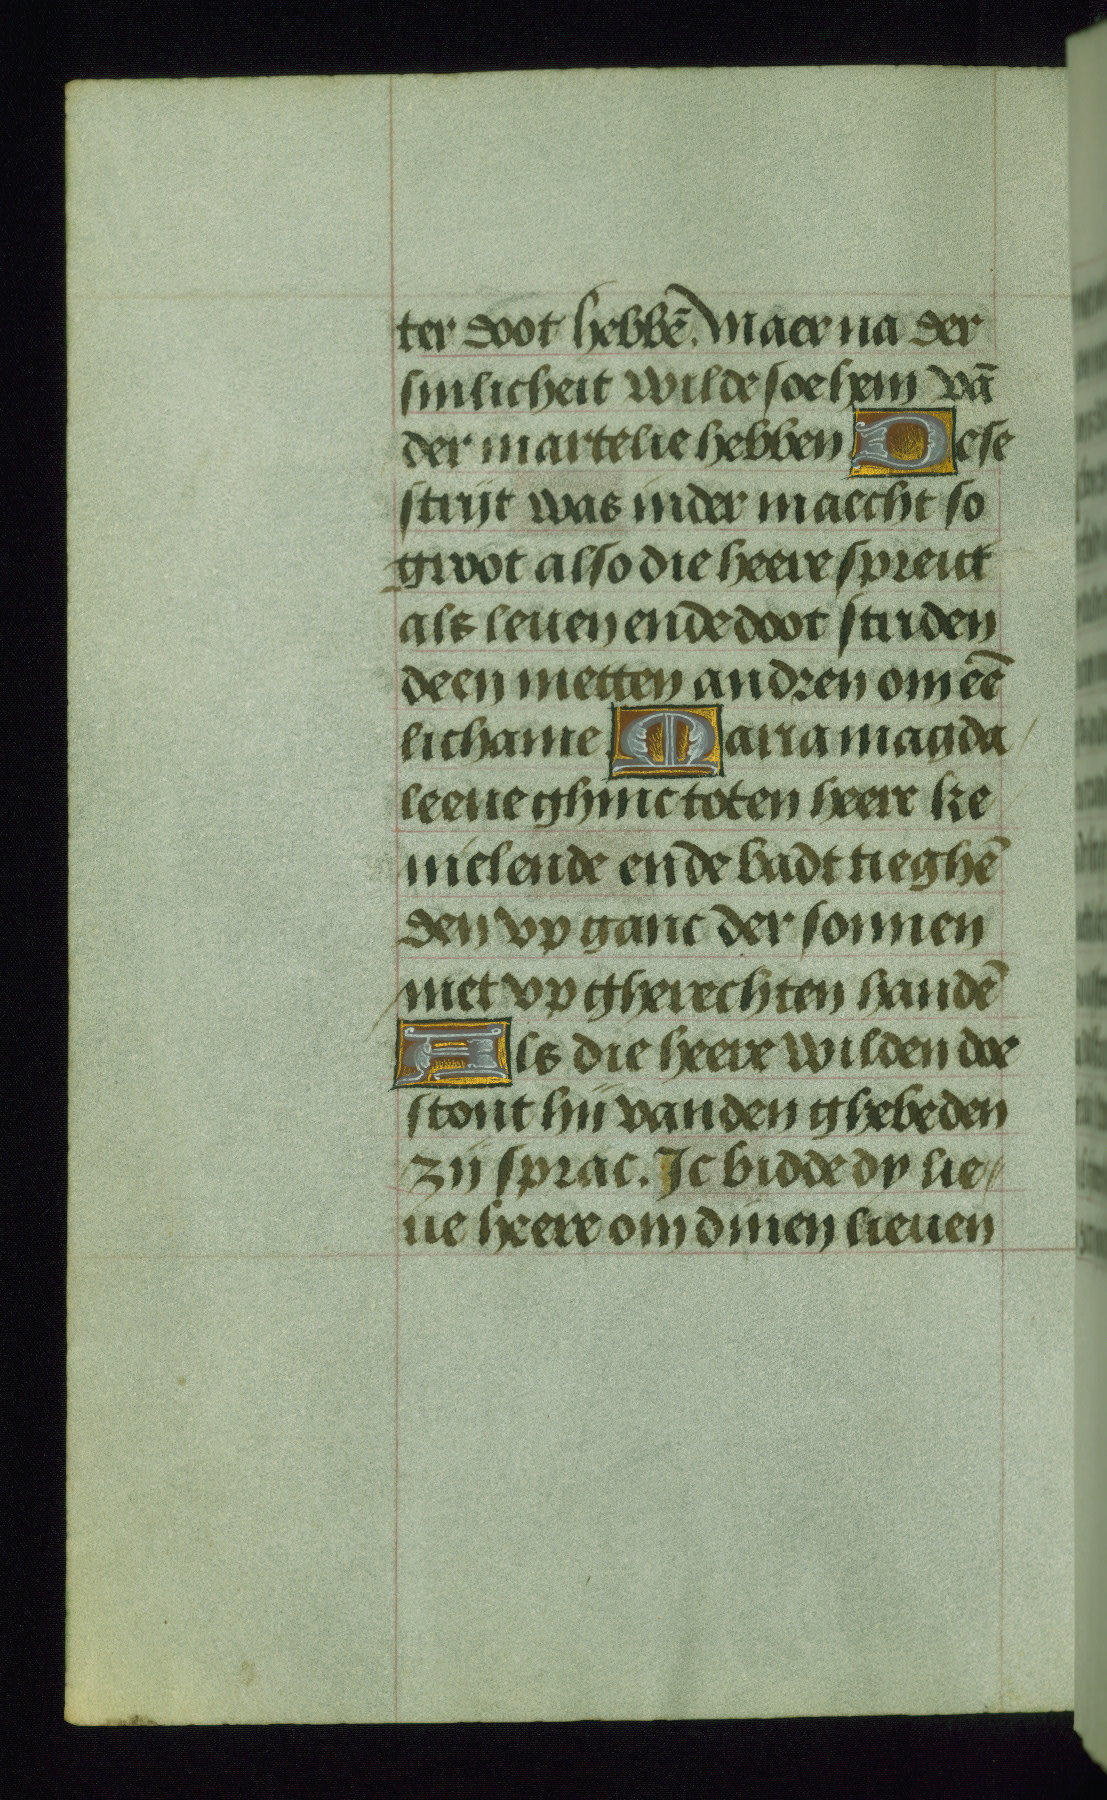 ter doot hebbē. Maer na der
sinlicheit wilde soe hem vā
der martelie hebben Dese
strijt was inder maecht so
groot also die heere spreict
als leuen ende doot striden
deen metten andren om eē
lichame Maria magda
leene ghinc toten heere ke
nielende ende badt tieghē
den vp ganc der sonnen
met vp gherechten handē
Als die heere wilden doe
stont hij van den ghebeden
zij sprac. Ic bidde dy lie//
ue heere om dinen lieuen